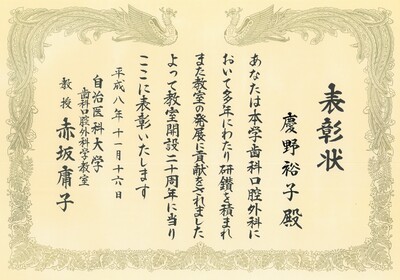 表彰状
慶野裕子殿
あなたは本学歯科口腔外科に
おいて多年にわたり研鑽を積まれ
また教室の発展に貢献をされました
よって教室開設二十周年に当り
ここに表彰いたします
平成八年十一月十六日
自治医科大学
歯科口腔外科学教室
教授 赤坂庸子